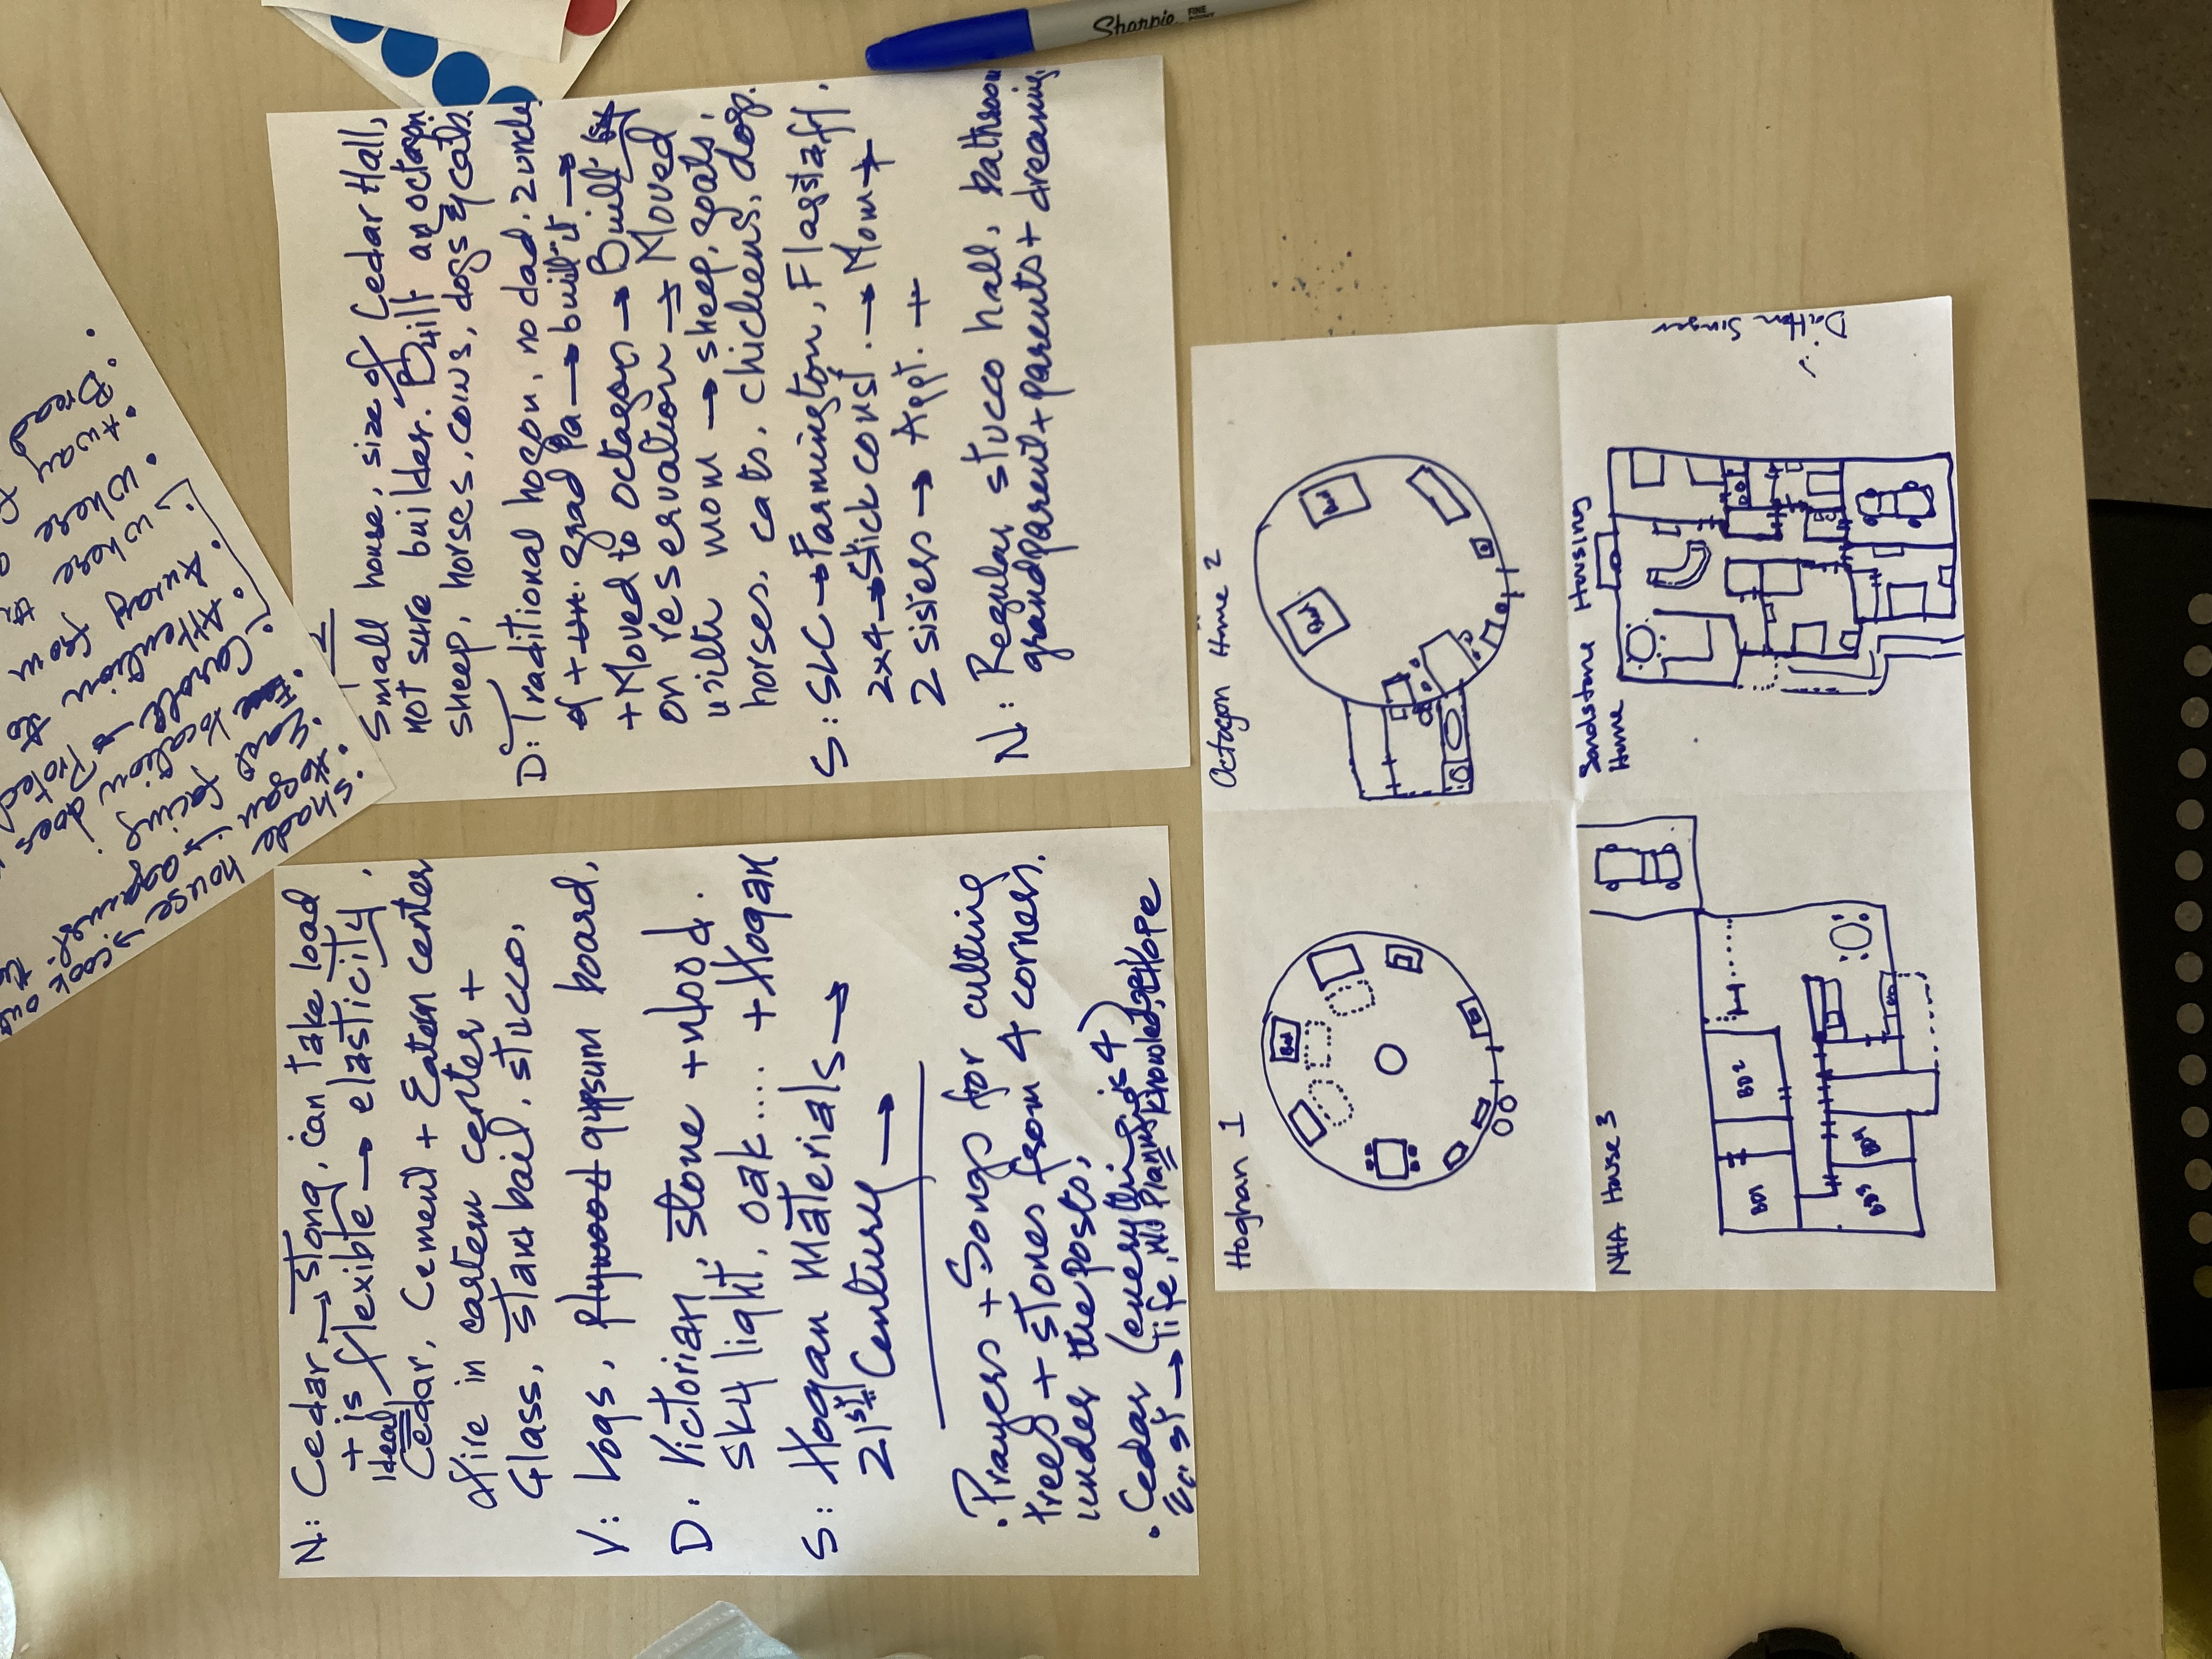 Sharpie
FINE
POINT
N: Cedar → stong, can take load
+ is flexible → elasticity.
Ideal
Cedar, Cement + Eatern center
fire in eastern center +
Glass, staw bail, stucco.
V: Logs, plywood gypsum board,
D: Victorian, stone + wood.
sky light, oak.... + Hogan
S: Hogan Materials →
21st Century →
• Prayers + Songs for cutting
trees + stones from 4 corners.
under the posts,
• Cedar (everything is 4)
East → life, plans, knowledge, Hope
Small house, size of Cedar Hall,
not sure builder. Built an octagon.
sheep, horses, cows, dogs & cats.
D: Traditional hogon, no dad. 2 uncle
grad pa → built it →
+ Moved to octagon → Built
on reservation → Moved
with mom → sheep, goats,
horses, cats, chickens, dog.
S: SLC → Farmington, Flagstaff,
2x4 → Stick const. → Mom +
2 sisters → Appt. +
N: Regular stucco hall, bathroom
grandparent + parents + dreaming
shade house → cook
Hogan
facing
location does
Carole → Protect
Attention to
Away from
where
where
Away
Bread
Hoghan 1
Octagon Home 2
NHA House 3
BD1
BD2
BD3
BD4
Sandstone Housing
Home
Dalton Singer